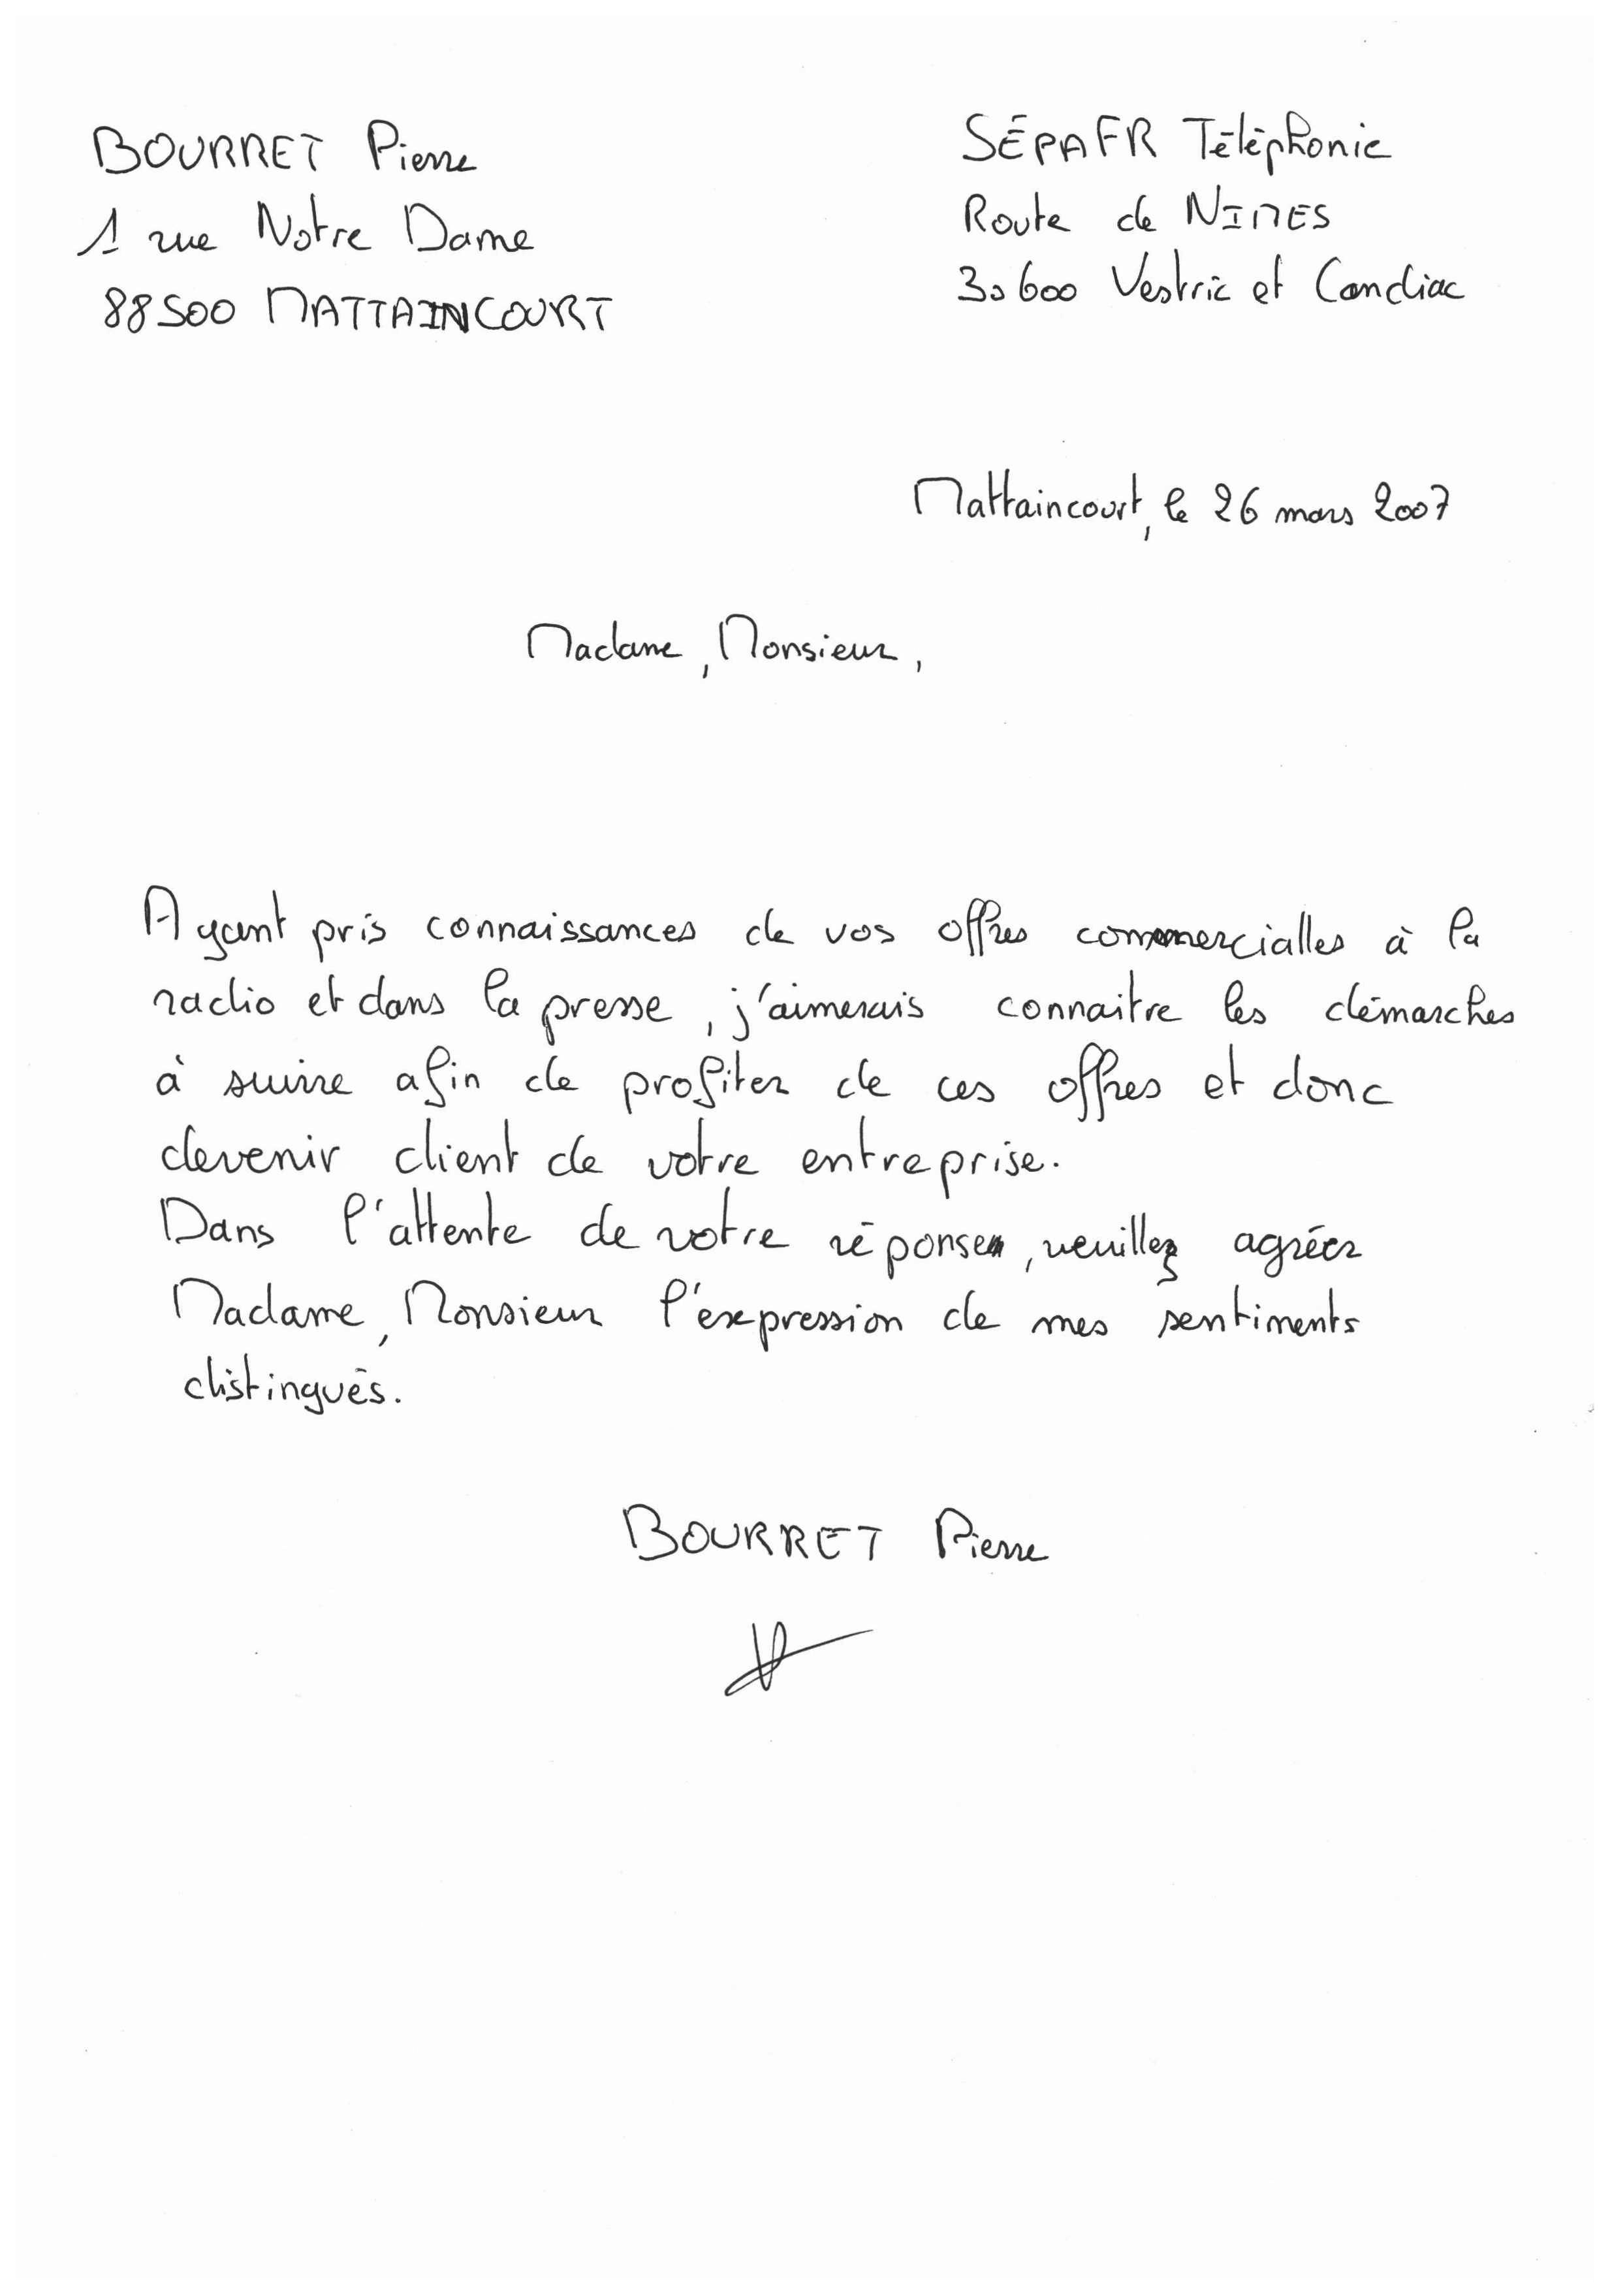 BOURRET Pierre
1 rue Notre Dame
88500 MATTAINCOURT
SÉPAFR Téléphonie
Route de NIMES
30600 Vestric et Candiac
Mattaincourt, le 26 mars 2007
Madame, Monsieur,
Ayant pris connaissances de vos offres commercialles à la
radio et dans la presse, j'aimerais connaitre les démarches
à suivre afin de profiter de ces offres et donc
devenir client de votre entreprise.
Dans l'attente de votre réponse, veuillez agréer
Madame, Monsieur l'expression de mes sentiments
distingués.
BOURRET Pierre